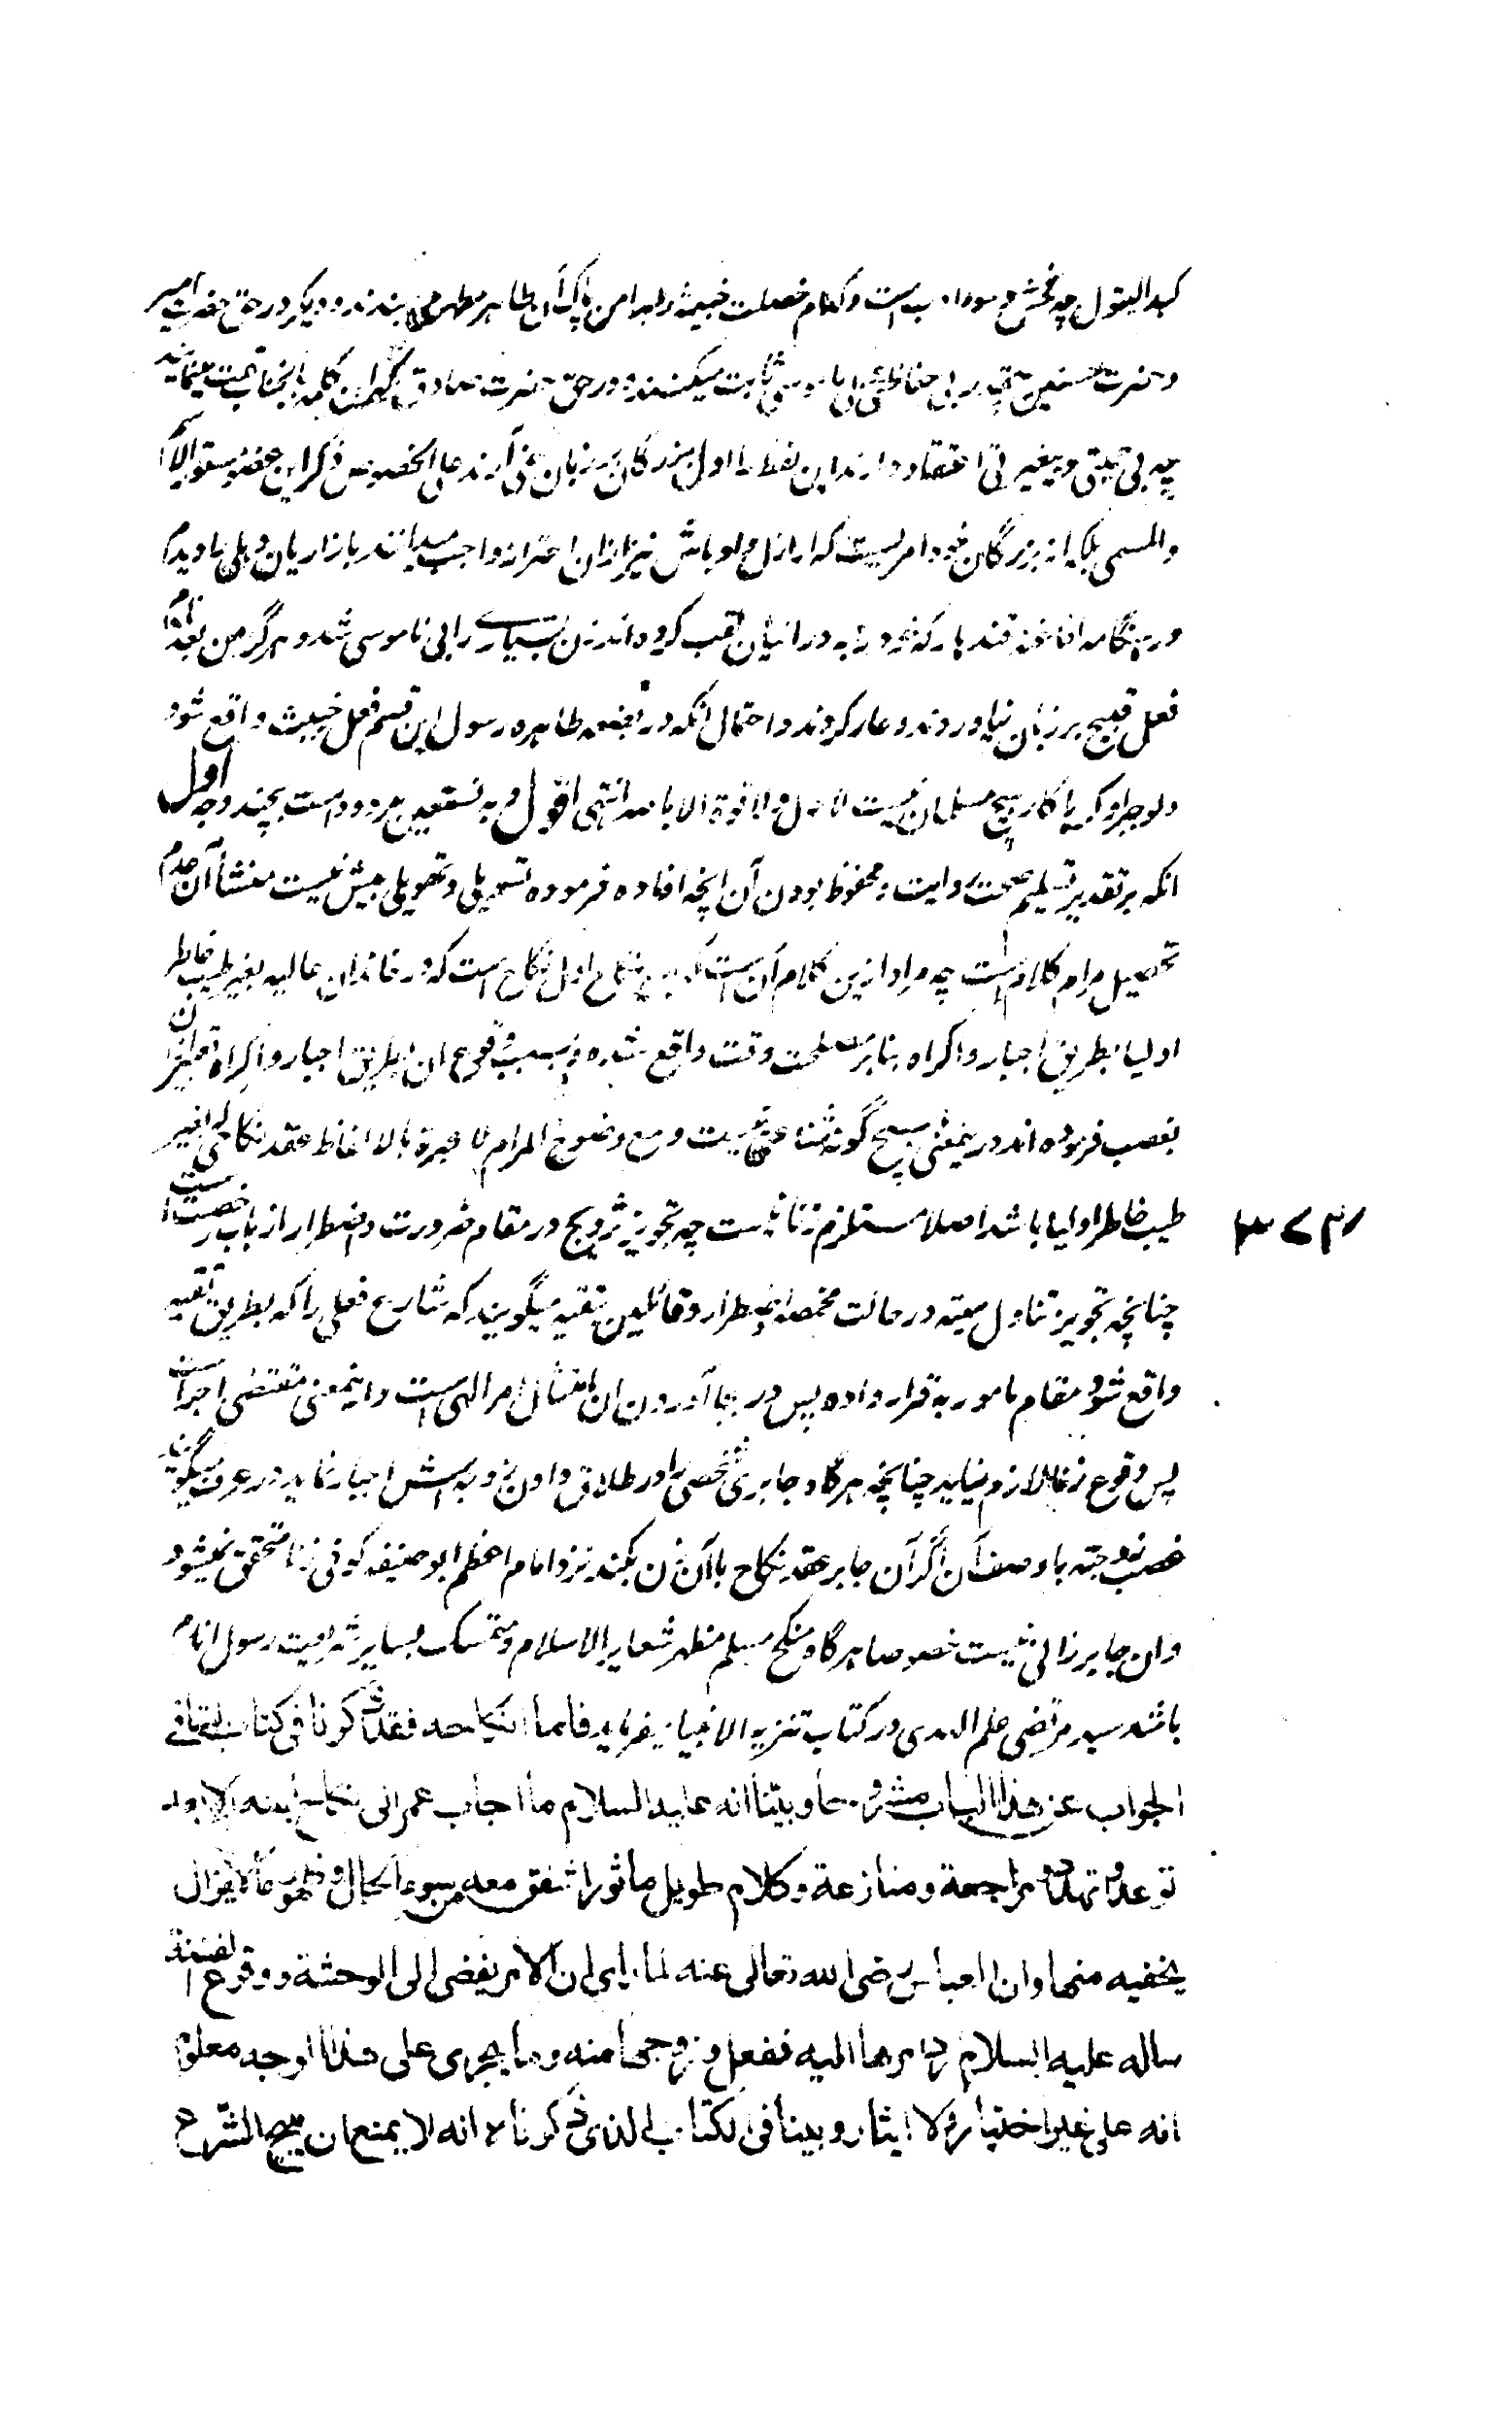 کبد البتول چه فحش و سوء ادب است و کدام خصلت خبیثه را بدامن پاک آن طاهر مطهر می بندند و دیگر در حق حضرت امیر
و حضرت حسنین چه قدر بی حفاظتی و بی ناموسی ثابت میکنند و در حق حضرت صادق که این کلمه بآنجناب تهمت مینمایند
چه بی حمیتی و بیغیرتی اعتقاد دارند این لفظ را اول بزرگان بر زبان نمی آرند علی الخصوص ذکر این عضو مستور الاسم
والمسمی بلکه از بزرگان خود امریست که اراذل و اوباش نیز ازان احتراز واجب میدانند بازاریان دهلی را دیدم
در هنگامه افاغنه قندهار که خود را به درانیان لقب کرده اند زن بسیاری را بی ناموسی شد و هرگز من بعد نام
فعل قبیح بر زبان نیاوردند و عار کردند و احتمال آنکه در بضعه طاهره رسول این قسم فعل خبیث واقع شود
ولو جبرا و کرها کار هیچ مسلمان نیست لا حول ولا قوة الا بالله انتهی اقول و به نستعین مردود است بچند وجه اول
انکه بر تقدیر تسلیم صحت روایت و محفوظ بودن آن آنچه افاده فرموده تسویلی و تهویلی بیش نیست منشأ آن عدم
تحصیل مرام کلام است چه مراد ازین کلام آن است که این نکاح اول نکاح است که در خاندان عالیه بغیر طیب خاطر
اولیا بطریق اجبار و اکراه بنابر مصلحت وقت واقع شده و بسبب وقوع آن بطریق اجبار و اکراه تعبیر ازان
بغصب فرموده اند درینمعنی هیچ گونه شناعتی نیست و مع وضوح المرام لا عبرة بالالفاظ عقد نکاحی که بغیر
طیب خاطر اولیا باشد اصلا مستلزم زنا نیست چه تجویز تزویج در مقام ضرورت و اضطرار از باب رخصت است
۳۷۳
چنانچه تجویز تناول میته در حالت مخمصه و اضطرار و قائلین تقیه میگویند که شارع فعلی را که بطریق تقیه
واقع شود مقام مامور به قرار داده پس در بجا آوردن ان امتثال امر الهی است و اینمعنی مقتضی اجر است
پس وقوع زنا لازم نیاید چنانچه هرگاه جابری شخصی را در طلاق دادن زوجه اش اجبار نماید در عرف میگویند
غصب زوجته با وصف آن اگر آن جابر عقد نکاح با آن زن بکند نزد امام اعظم ابوحنیفه کوفی زنا متحقق نمیشود
و ان جابر زانی نیست خصوصا هرگاه منکح مسلم مظهر شعایر الاسلام و متمسک بسایر شریعت رسول انام
باشد سید مرتضی علم الهدی در کتاب تنزیه الانبیاء میفرماید فاما انکاحه فقد ذکرنا فی کتاب الشافی
الجواب عن هذا الباب مشروحا وبینا انه علیه السلام ما اجاب عمر الی نکاح بنته الا بعد
توعد وتهدد ومراجعة ومنازعة وکلام طویل ماثور اشفق معه من سوء الحال وظهور ما لا یزال
یخفیه منها وان العباس رضی الله تعالی عنه لما رای ان الامر یفضی الی الوحشة ووقوع الفتنة
ساله علیه السلام رد امرها الیه ففعل وزوجها منه وما یجری علی هذا الوجه معلوم
انه علی غیر اختیار ولا ایثار وبینا فی الکتاب الذی ذکرناه انه لا یمتنع ان یبیح الشرع